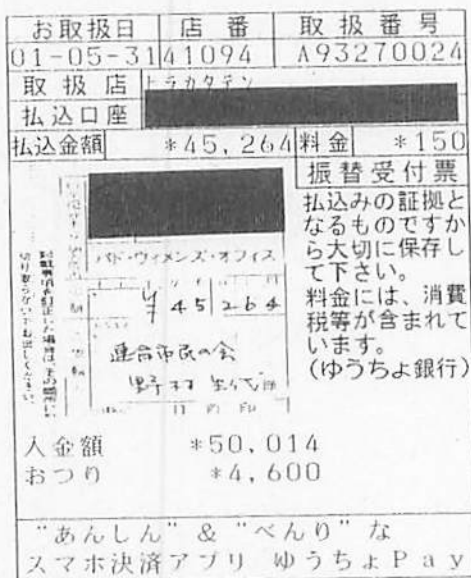 お取扱日 店番 取扱番号
01-05-31 41094 A93270024
取扱店 トラカタテン
払込口座
払込金額 *45,264 料金 *150
振替受付票
払込みの証拠と
なるものですか
ら大切に保存し
て下さい。
料金には、消費
税等が含まれて
います。
(ゆうちょ銀行)
パド・ウィメンズ・オフィス
¥45264
連合市民の会
野村
入金額 *50,014
おつり *4,600
"あんしん"&"べんり"な
スマホ決済アプリ ゆうちょPay